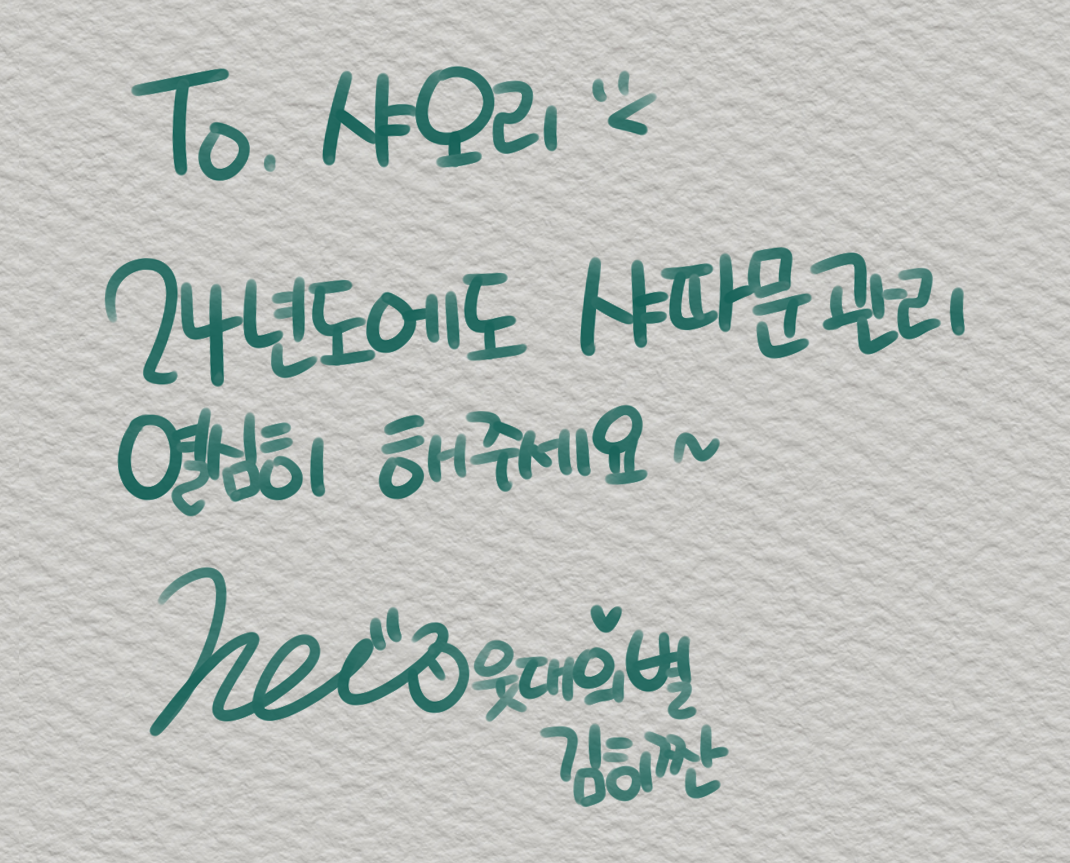 To. 샤오리
24년도에도 샤파문관리
열심히 해주세요 ~
웃대의별
김히짠